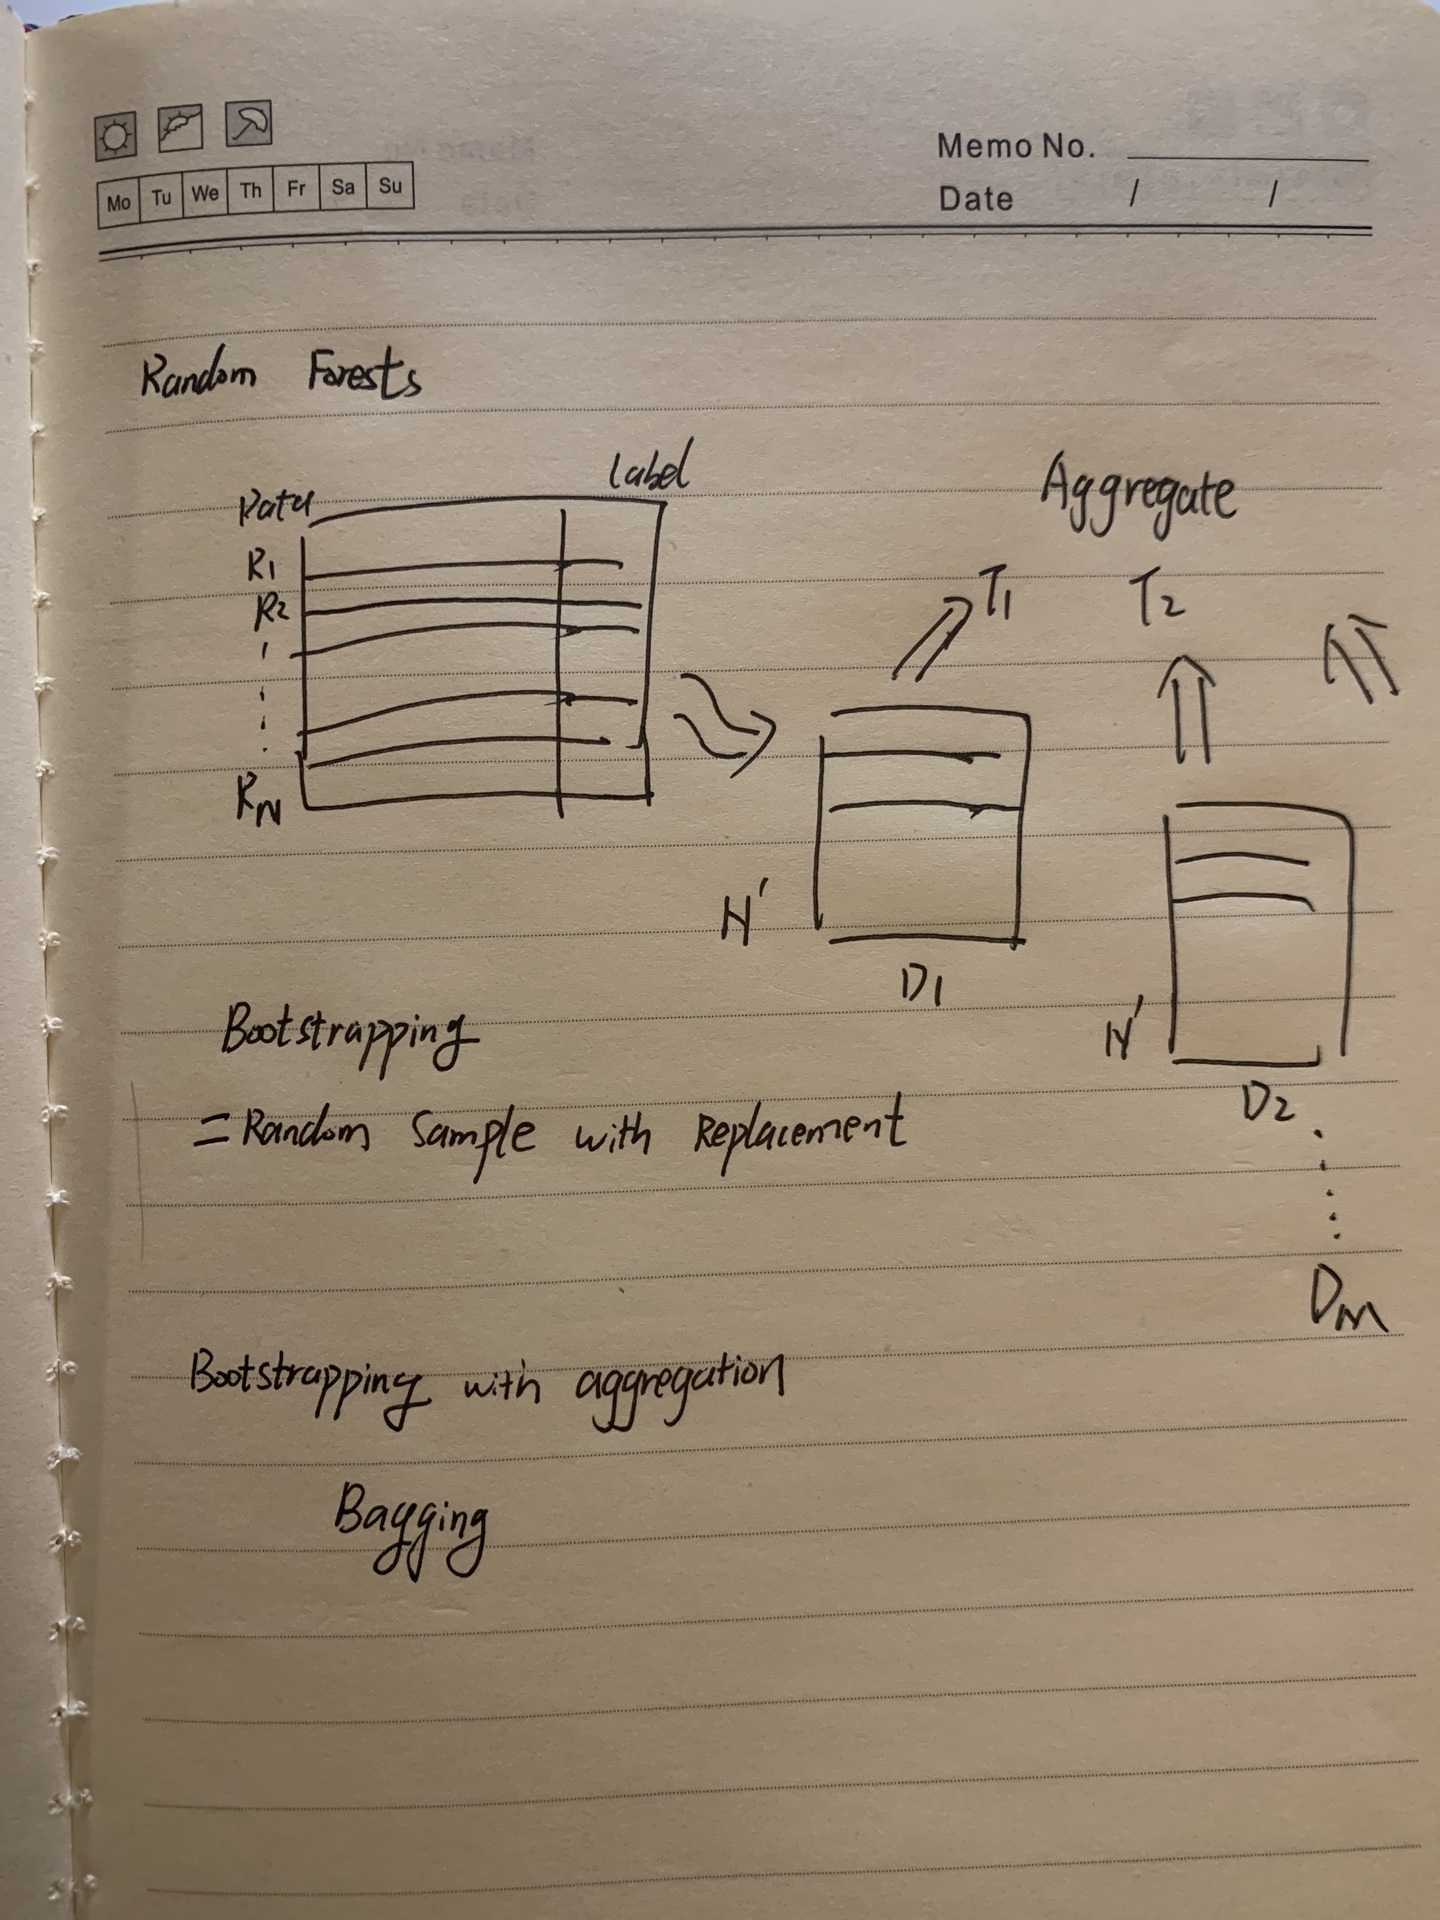 Memo No.
Mo Tu We Th Fr Sa Su
Date / /
Random Forests
Data
Label
Aggregate
R1
R2
RN
T1
T2
N'
D1
N'
D2
DM
Bootstrapping
= Random Sample with Replacement
Bootstrapping with aggregation
Bagging